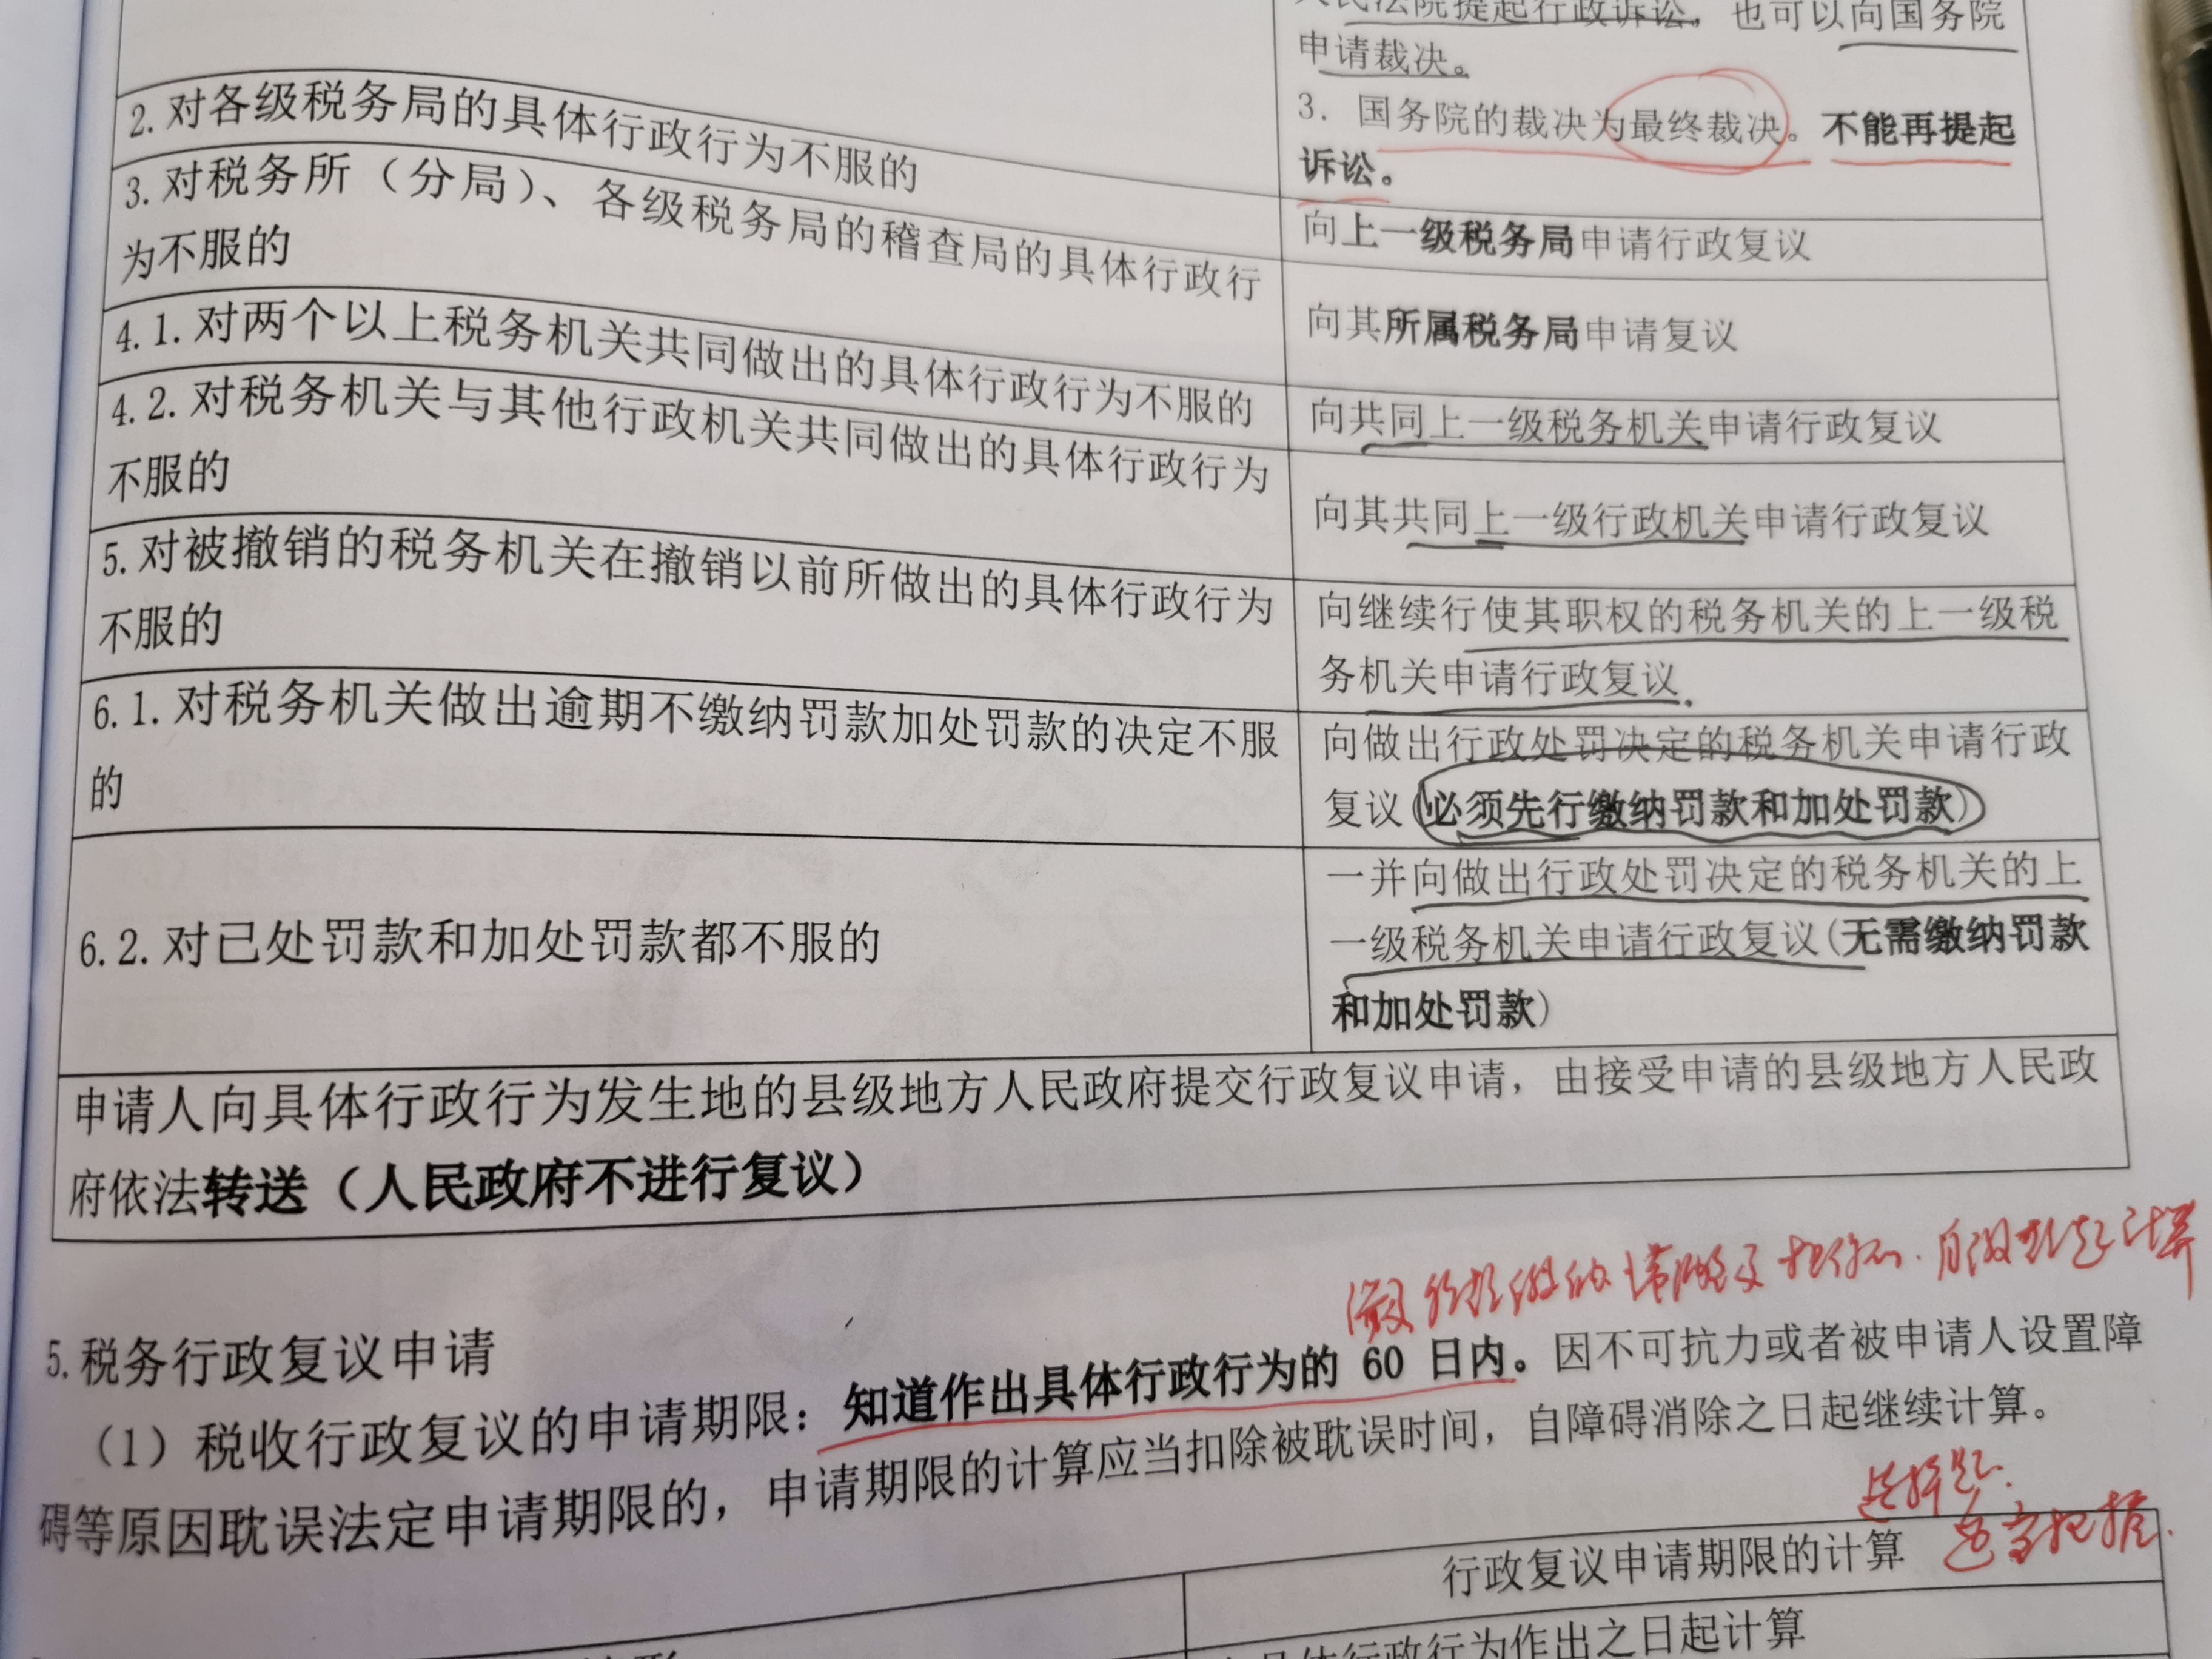 人民法院提起行政诉讼，也可以向国务院
申请裁决。
3. 国务院的裁决为最终裁决。不能再提起
诉讼。
2.对各级税务局的具体行政行为不服的
向上一级税务局申请行政复议
3.对税务所（分局）、各级税务局的稽查局的具体行政行
为不服的
向其所属税务局申请复议
4.1.对两个以上税务机关共同做出的具体行政行为不服的
向共同上一级税务机关申请行政复议
4.2.对税务机关与其他行政机关共同做出的具体行政行为
不服的
向其共同上一级行政机关申请行政复议
5.对被撤销的税务机关在撤销以前所做出的具体行政行为
不服的
向继续行使其职权的税务机关的上一级税
务机关申请行政复议.
6.1.对税务机关做出逾期不缴纳罚款加处罚款的决定不服
的
向做出行政处罚决定的税务机关申请行政
复议(必须先行缴纳罚款和加处罚款)
6.2.对已处罚款和加处罚款都不服的
一并向做出行政处罚决定的税务机关的上
一级税务机关申请行政复议(无需缴纳罚款
和加处罚款)
申请人向具体行政行为发生地的县级地方人民政府提交行政复议申请，由接受申请的县级地方人民政
府依法转送（人民政府不进行复议）
起计算
5.税务行政复议申请
（1）税收行政复议的申请期限：知道作出具体行政行为的 60 日内。因不可抗力或者被申请人设置障
碍等原因耽误法定申请期限的，申请期限的计算应当扣除被耽误时间，自障碍消除之日起继续计算。
选择题.
适当把握.
行政复议申请期限的计算
具体行政行为作出之日起计算